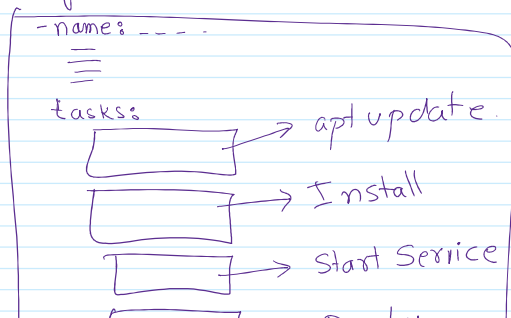 -name: ----.
tasks:
apt update.
Install
Start Service